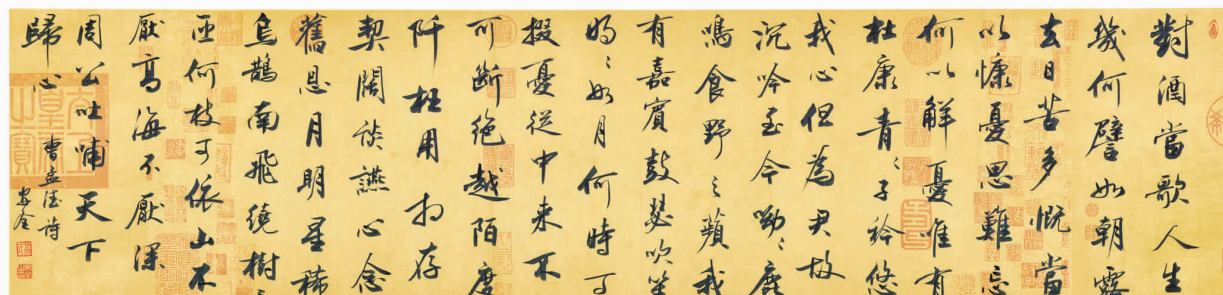 對酒當歌人生
幾何譬如朝露
去日苦多慨當
以慷憂思難忘
何以解憂惟有
杜康青〻子衿悠
我心但為君故
沉吟至今呦〻鹿
鳴食野之蘋我
有嘉賓鼓瑟吹笙
明〻如月何時可
掇憂從中來不
可斷絕越陌度
阡枉用相存
契闊談讌心念
舊恩月明星稀
烏鵲南飛繞樹三
匝何枝可依山不
厭高海不厭深
周公吐哺天下
歸心
曹孟德詩